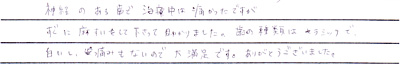 神経のある歯で治療中は痛かったですが
すぐに麻すいをして下さって助かりました。歯の種類はセラミックで、
白いし、痛みもないので大満足です。ありがとうございました。